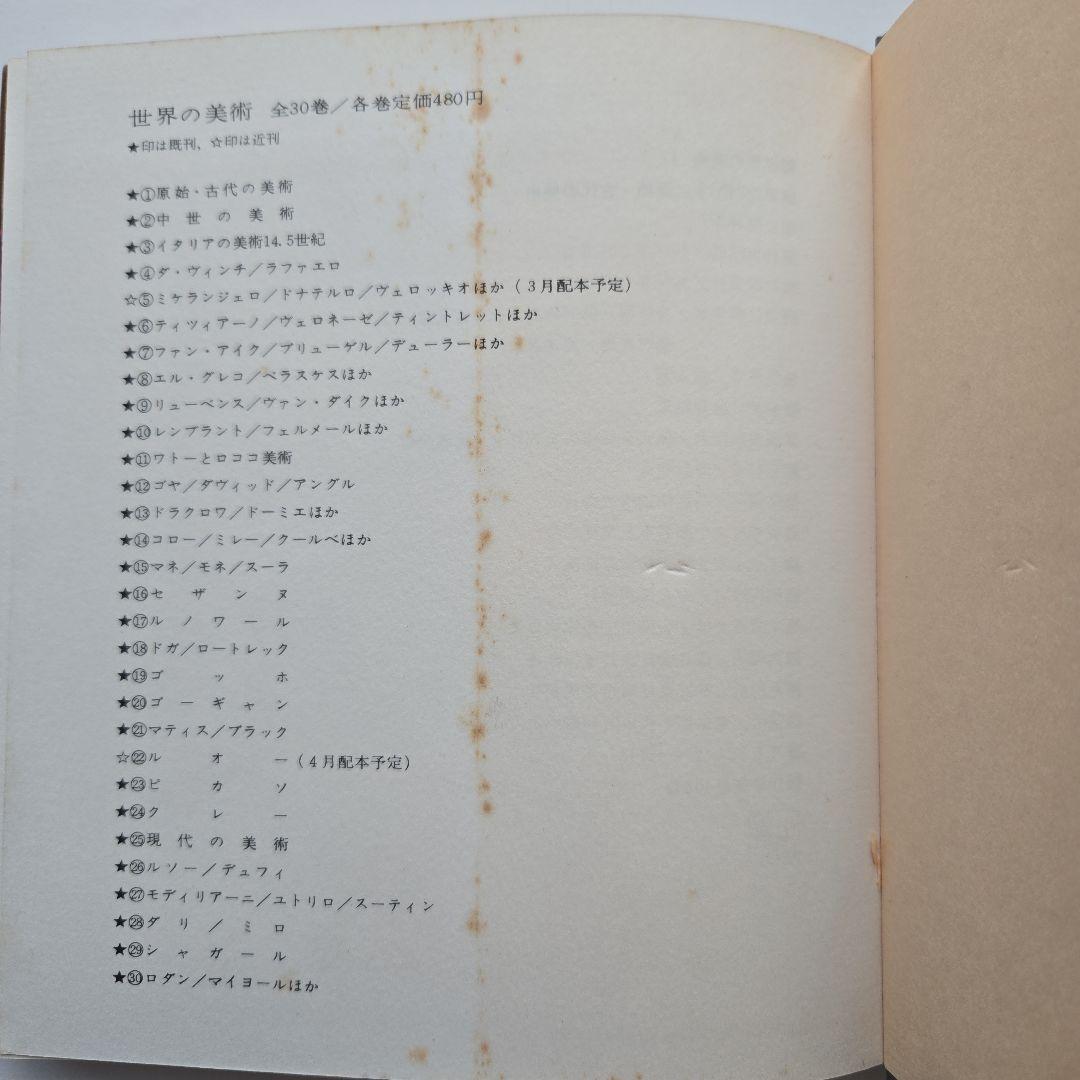 世界の美術 全30巻／各巻定価480円
★印は既刊、☆印は近刊
★①原始・古代の美術
★②中世の美術
★③イタリアの美術14.5世紀
★④ダ・ヴィンチ／ラファエロ
☆⑤ミケランジェロ／ドナテルロ／ヴェロッキオほか（3月配本予定）
★⑥ティツィアーノ／ヴェロネーゼ／ティントレットほか
★⑦ファン・アイク／ブリューゲル／デューラーほか
★⑧エル・グレコ／ベラスケスほか
★⑨リューベンス／ヴァン・ダイクほか
★⑩レンブラント／フェルメールほか
★⑪ワトーとロココ美術
★⑫ゴヤ／ダヴィッド／アングル
★⑬ドラクロワ／ドーミエほか
★⑭コロー／ミレー／クールベほか
★⑮マネ／モネ／スーラ
★⑯セザンヌ
★⑰ルノワール
★⑱ドガ／ロートレック
★⑲ゴッホ
★⑳ゴーギャン
★㉑マティス／ブラック
☆㉒ルオー（4月配本予定）
★㉓ピカソ
★㉔クレー
★㉕現代の美術
★㉖ルソー／デュフィ
★㉗モディリアーニ／ユトリロ／スーティン
★㉘ダリ／ミロ
★㉙シャガール
★㉚ロダン／マイヨールほか